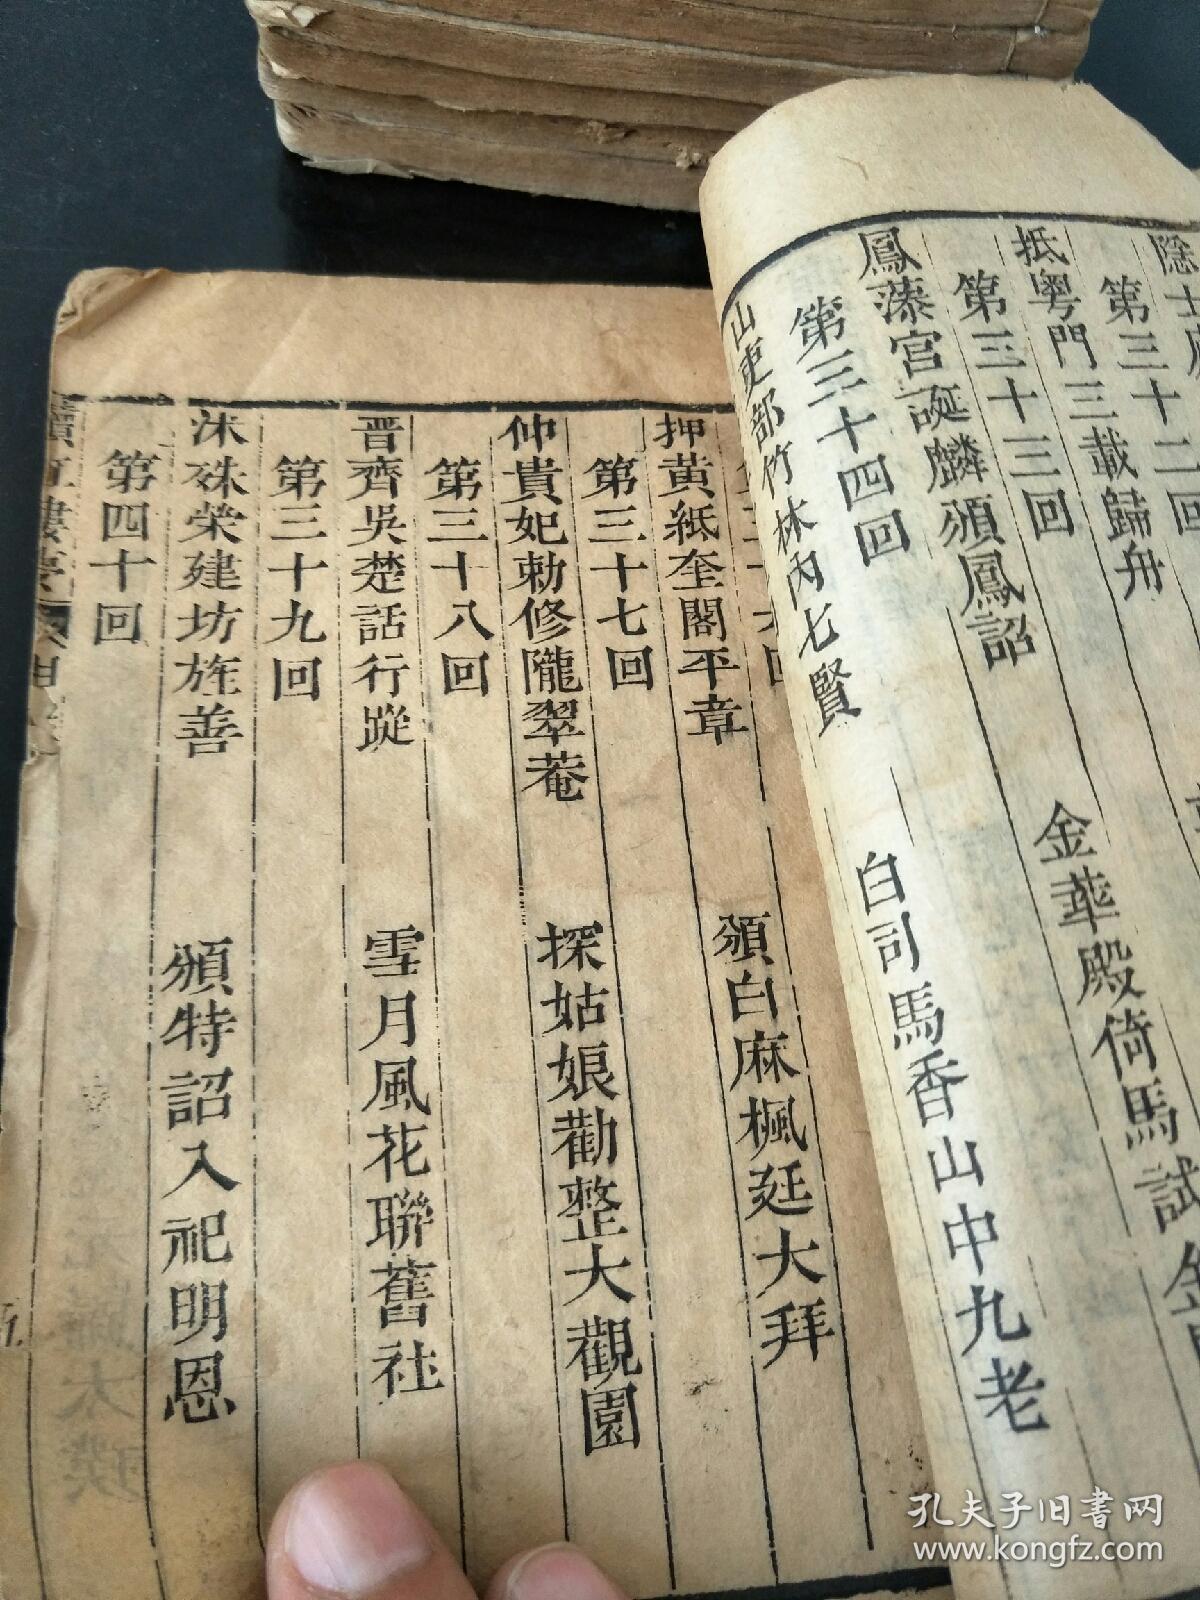 第三十二回
抵粵門三載歸舟
第三十三回
金華殿倚馬試
鳳藻宮誕麟頒鳳詔
第三十四回
山吏部竹林丙七賢 白司馬香山中九老
押黃紙奎閣平章 頒白麻楓廷大拜
第三十七回
仲貴妃勅修隴翠菴 探姑娘勸整大觀園
第三十八回
晋齊吳楚話行蹤 雪月風花聯舊社
第三十九回
沐殊榮建坊旌善 頒特詔入祀明恩
第四十回
孔夫子旧书网
www.kongfz.com